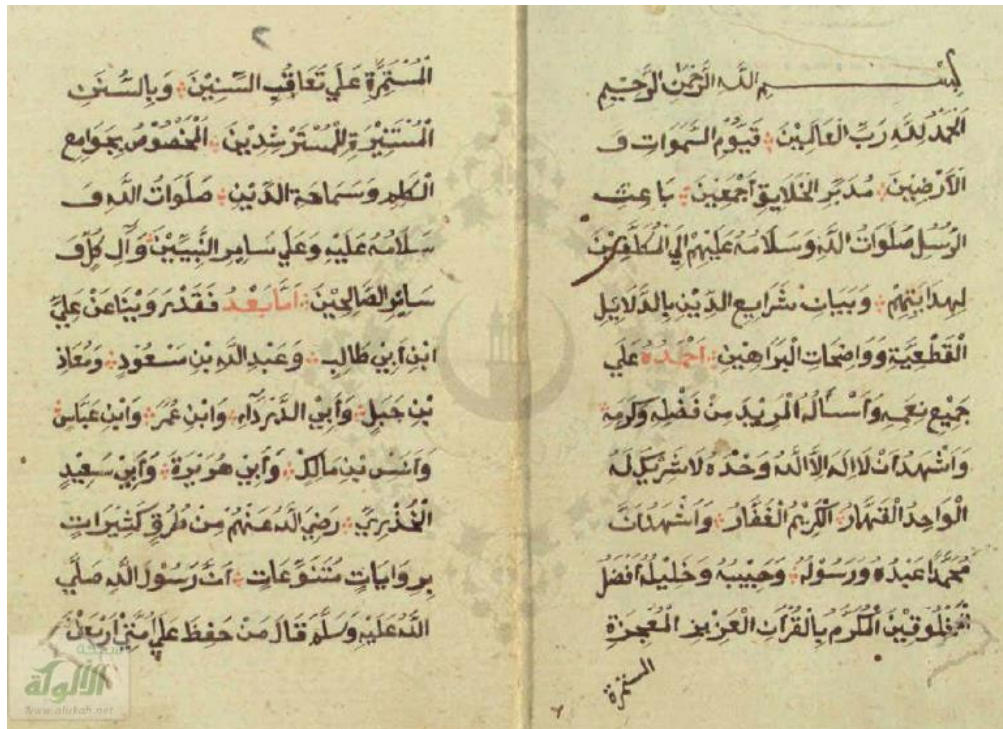 بِسْمِ اللَّهِ الرَّحْمٰنِ الرَّحِيْمِ
اَلْحَمْدُ لِلَّهِ رَبِّ الْعَالَمِيْنَ قَيُّوْمِ السَّمٰوَاتِ وَ
الْأَرْضِيْنَ مُدَبِّرِ الْخَلَايِقِ أَجْمَعِيْنَ بَاعِثِ
الرُّسُلِ صَلَوَاتُ اللَّهِ وَسَلَامُهُ عَلَيْهِمْ إِلَي الْمُكَلَّفِيْنَ
لِهِدَايَتِهِمْ وَبَيَانِ شَرَايِعِ الدِّيْنِ بِالدَّلَايِلِ
الْقَطْعِيَّةِ وَوَاضِحَاتِ الْبَرَاهِيْنِ اَحْمَدُهُ عَلَي
جَمِيْعِ نِعَمِهِ وَأَسْأَلُهُ الْمَزِيْدَ مِنْ فَضْلِهِ وَكَرَمِهِ
وَاَشْهَدُ اَنْ لَا اِلَهَ اِلَّا اللَّهُ وَحْدَهُ لَا شَرِيْكَ لَهُ
الْوَاحِدُ الْقَهَّارُ الْكَرِيْمُ الْغَفَّارُ وَاَشْهَدُ اَنَّ
مُحَمَّدًا عَبْدُهُ وَرَسُوْلُهُ وَحَبِيْبُهُ وَخَلِيْلُهُ أَفْضَلُ
الْمَخْلُوْقِيْنَ الْمُكَرَّمُ بِالْقُرْآنِ الْعَزِيْزِ الْمُعْجِزَةِ
المستمرة
٢
الْمُسْتَمِرَّةِ عَلَي تَعَاقُبِ السِّنِيْنَ وَبِالسُّنَنِ
الْمُسْتَنِيْرَةِ لِلْمُسْتَرْشِدِيْنَ اَلْمَخْصُوْصُ بِجَوَامِعِ
الْكَلِمِ وَسَمَاحَةِ الدِّيْنِ صَلَوَاتُ اللَّهِ وَ
سَلَامُهُ عَلَيْهِ وَعَلَي سَايِرِ النَّبِيِّيْنَ وَآلِ كُلٍّ وَ
سَايِرِ الصَّالِحِيْنَ اَمَّا بَعْدُ فَقَدْ رَوَيْنَا عَنْ عَلِيِّ
ابْنِ اَبِيْ طَالِبٍ وَعَبْدِ اللَّهِ بْنِ مَسْعُوْدٍ وَمُعَاذِ
بْنِ جَبَلٍ وَأَبِي الدَّرْدَآءِ وَابْنِ عُمَرَ وَابْنِ عَبَّاسٍ
وَاَنَسِ بْنِ مَالِكٍ وَأَبِيْ هُرَيْرَةَ وَأَبِيْ سَعِيْدٍ
الْخُذْرِيِّ رَضِيَ اللَّهُ عَنْهُمْ مِنْ طُرُقٍ كَثِيْرَاتٍ
بِرِوَايَاتٍ مُتَنَوِّعَاتٍ اَنَّ رَسُوْلَ اللَّهِ صَلَّي
اللَّهُ عَلَيْهِ وَسَلَّمَ قَالَ مَنْ حَفِظَ عَلَي اُمَّتِيْ اَرْبَعِيْنَ
شبكة
الألوكة
www.alukah.net